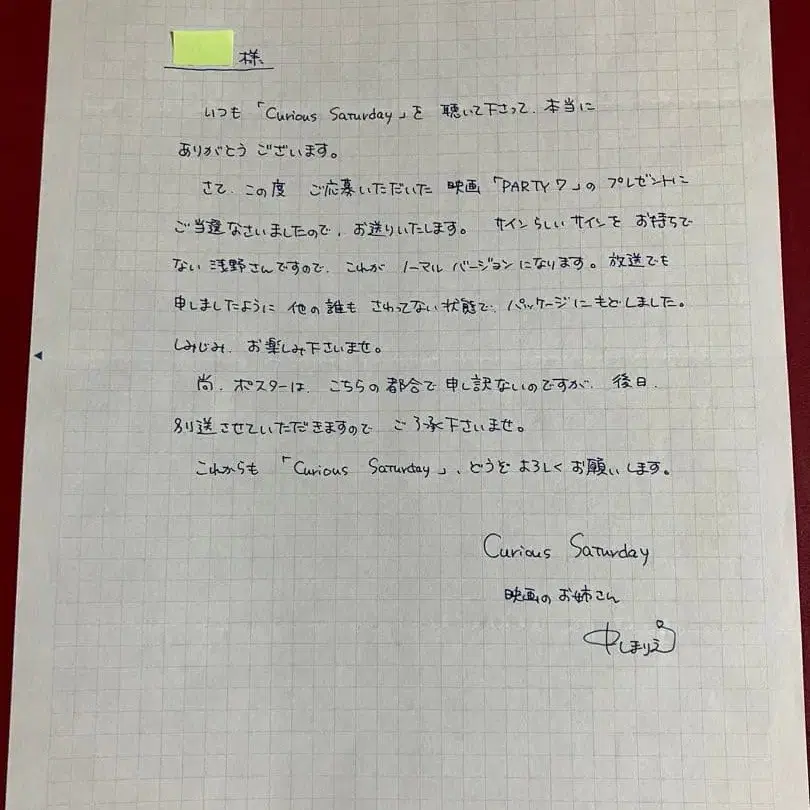 様
いつも「Curious Saturday」を 聴いて下さって、本当に
ありがとう ございます。
さて、この度 ご応募いただいた 映画「PARTY7」の プレゼントに
ご当選なさいましたので、お送りいたします。 サインらしい サインを お持ちで
ない 浅野さんですので、これが ノーマル バージョンになります。放送でも
申しましたように 他の誰も さわってない状態で、パッケージにもどしました。
しみじみ、お楽しみ下さいませ。
尚、ポスターは、こちらの都合で 申し訳ないのですが、後日、
別送させていただきますので ご了承下さいませ。
これからも 「Curious Saturday」、どうぞ よろしく お願いします。
Curious Saturday
映画の お姉さん
しまりえ